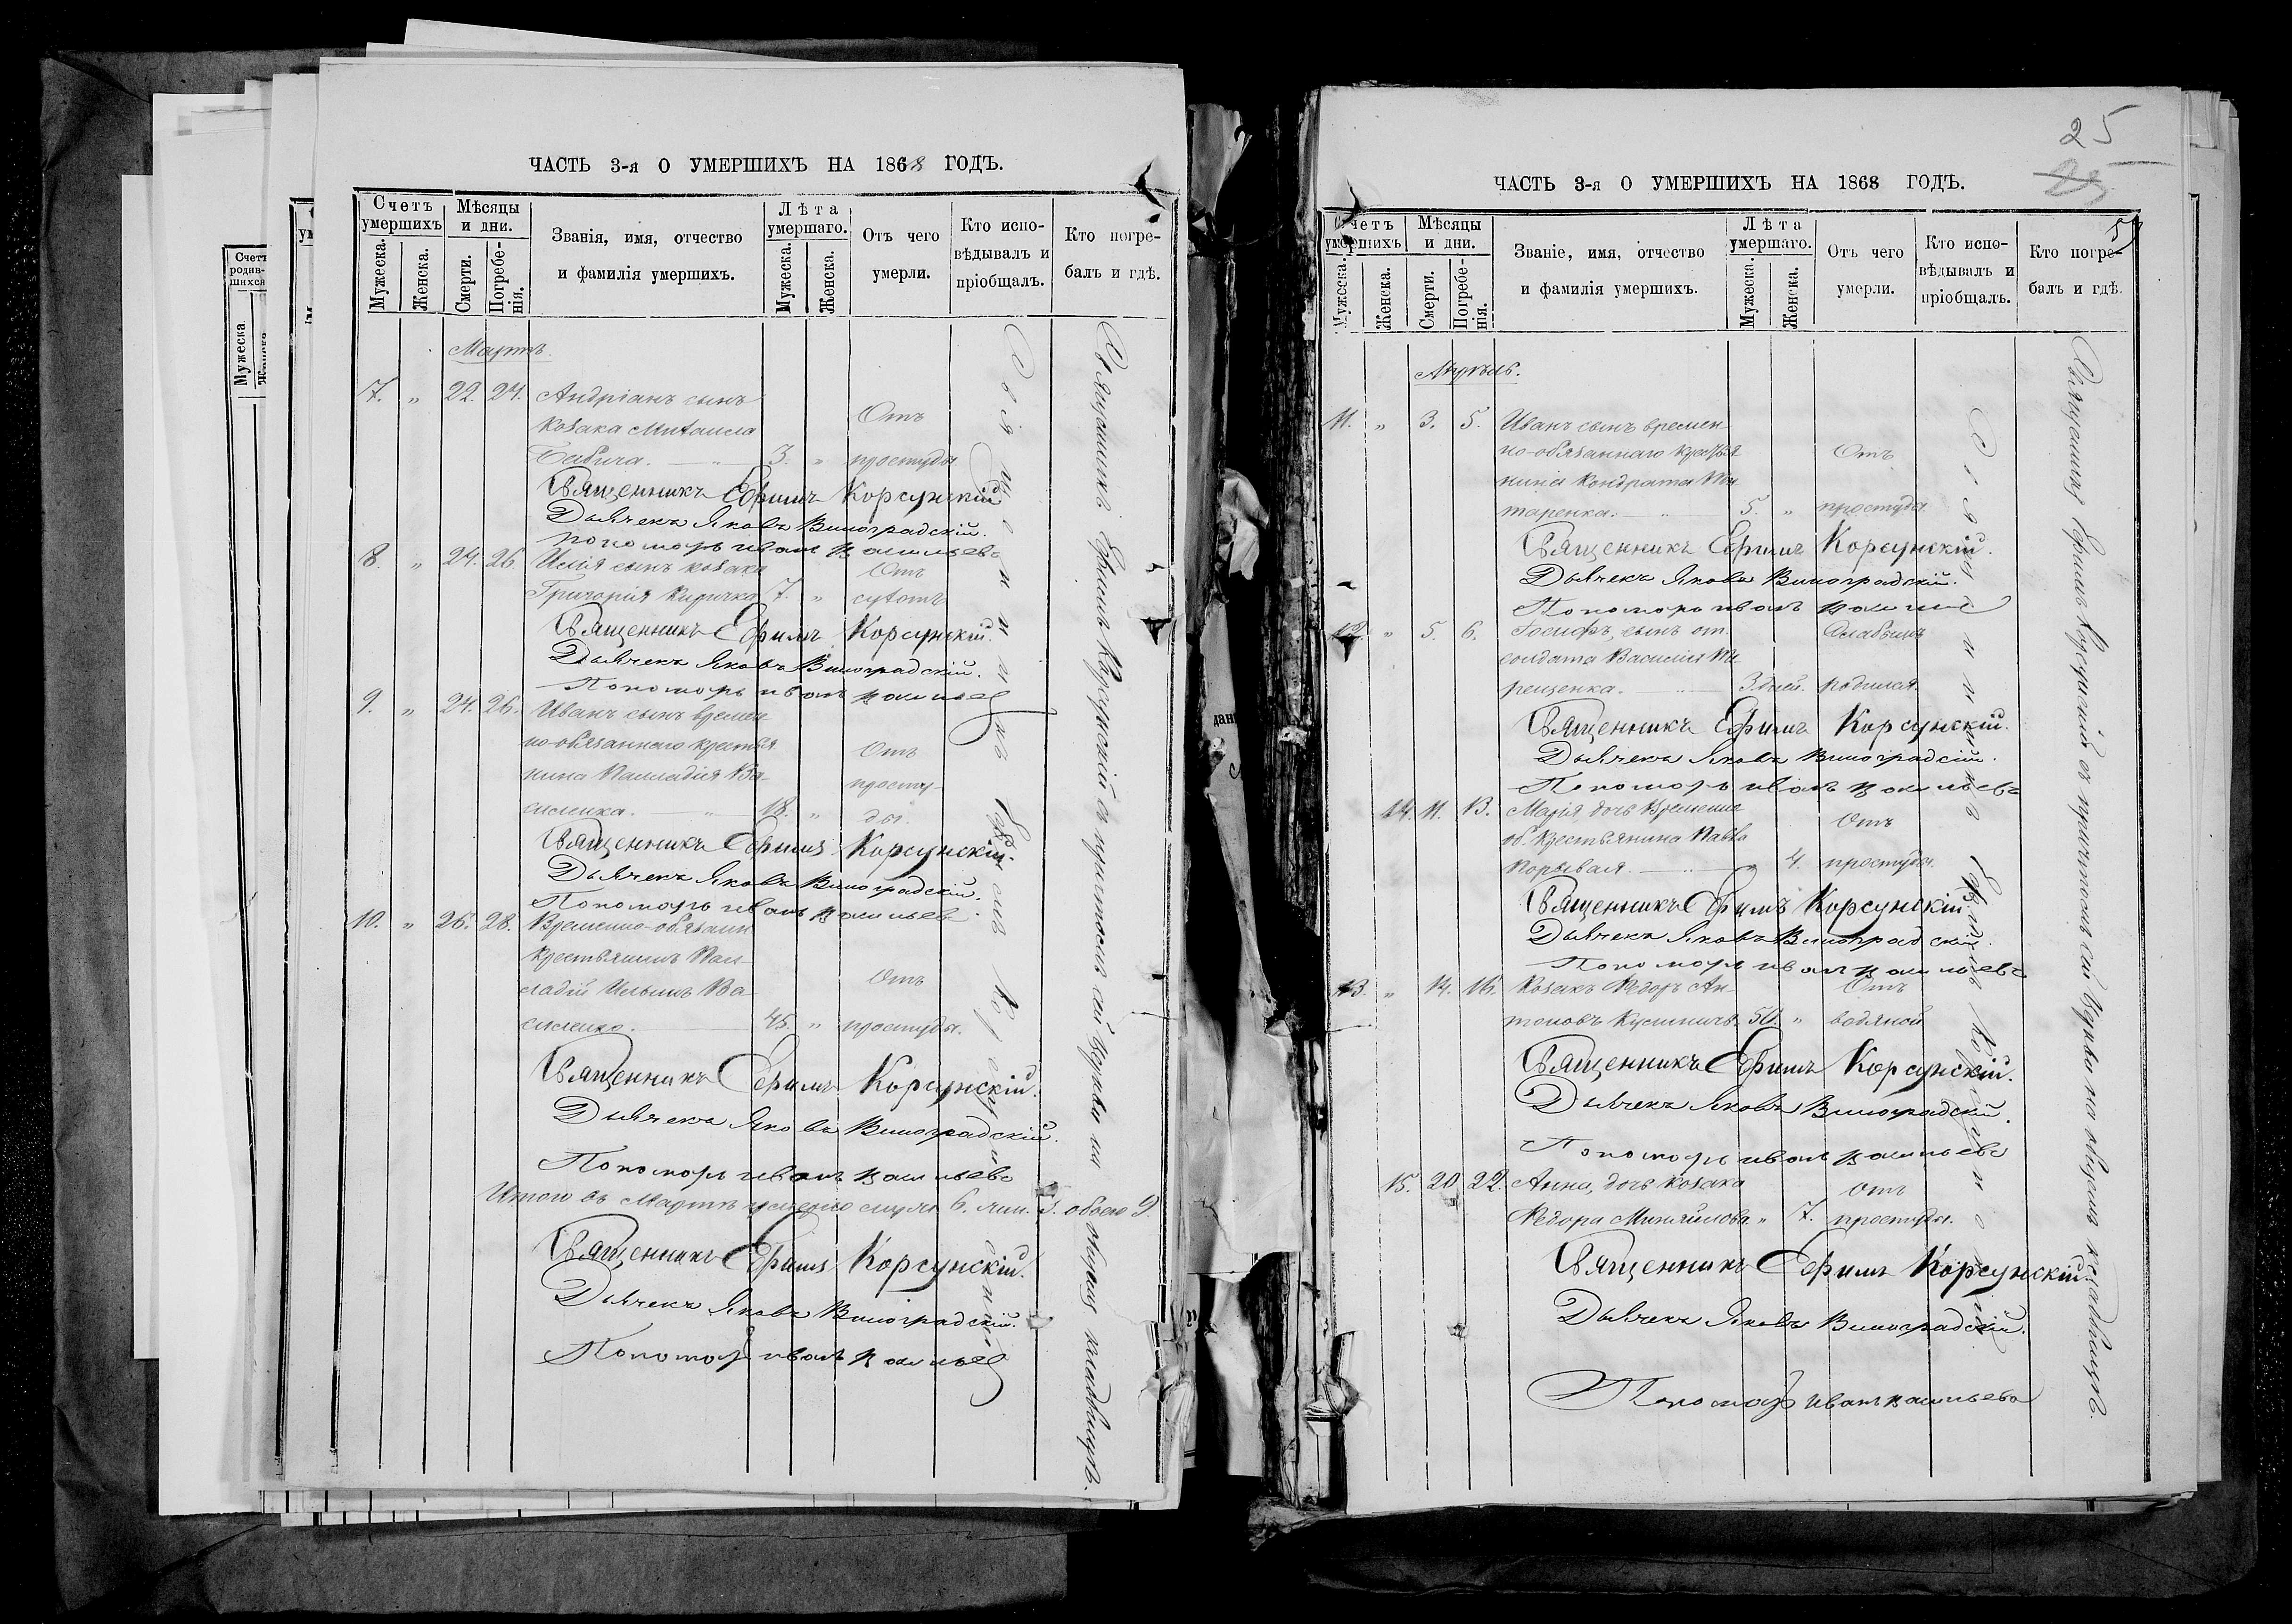 ЧАСТЬ 3-я О УМЕРШИХЪ НА 1868 ГОДЪ.
Счетъ умершихъ
Мужеска.
Женска.
Мѣсяцы и дни.
Смерти.
Погребе-
нія.
Званія, имя, отчество
и фамилія умершихъ.
Лѣта умершаго.
Мужеска.
Женска.
Отъ чего
умерли.
Кто испо-
вѣдывалъ и
пріобщалъ.
Кто погре-
балъ и гдѣ.
Мартъ.
7. „ 22. 24. Андріанъ сынъ
козака Михаила Отъ
Бабича. — „ — 3. „ простуды
Священникъ Ефимъ Корсунскій
Дьячекъ Яковъ Виноградскій.
пономарь иванъ васильевъ
8. „ 24. 26. Илія сынъ козака Отъ
Григорія Киричка 7. „ сухотъ
Священникъ Ефимъ Корсунскій.
Дьячекъ Яковъ Виноградскій.
Пономарь иванъ васильев
9. „ 24. 26. Иванъ сынъ времен
но-обязаннаго крестья Отъ
нина Палладія Ва- просту-
силенка. „ 18. „ ды.
Священникъ Ефимъ Корсунскій.
Дьячекъ Яковъ Виноградскій.
Пономарь иванъ васильев
10. „ 26. 28. Временно-обязанн
крестьянинъ Пал
ладій Ильинъ Ва Отъ
силенко. 45. „ простуды.
Священникъ Ефимъ Корсунскій.
Дьячекъ Яковъ Виноградскій.
Пономарь иванъ васильевъ
Итого въ Мартѣ умерло муж. 6. жен. 3. обоего 9.
Священникъ Ефимъ Корсунскій.
Дьячекъ Яковъ Виноградскій.
Пономарь иванъ васильев
Священникъ Ефимъ Корсунскій
Священникъ Ефимъ Корсунскій съ причтомъ сей Церкви на общемъ кладбищѣ.
25
ЧАСТЬ 3-я О УМЕРШИХЪ НА 1868 ГОДЪ.
Счетъ умершихъ
Мужеска.
Женска.
Мѣсяцы и дни.
Смерти.
Погребе-
нія.
Званіе, имя, отчество
и фамилія умершихъ.
Лѣта умершаго.
Мужеска.
Женска.
Отъ чего
умерли.
Кто испо-
вѣдывалъ и
пріобщалъ.
Кто погре-
балъ и гдѣ.
Апрѣль.
11. „ 3. 5. Иванъ сынъ времен
но-обязаннаго крестья Отъ
нина Кондрата
таренка. „ 5. „ простуды
Священникъ Ефимъ Корсунскій.
Дьячекъ Яковъ Виноградскій.
Пономарь иванъ
12. „ 5. 6. Іосифъ, сынъ от. Слабымъ
солдата Василія
рещенка. „ 3 дней. родился.
Священникъ Ефимъ Корсунскій.
Дьячекъ Яковъ Виноградскій.
Пономарь иванъ васильевъ
14. 11. 13. Марія дочь временно Отъ
об. крестьянина Павла
Порывая. — „ — „ 4. простуды.
Священникъ Ефимъ Корсунскій.
Дьячекъ Яковъ Виноградскій.
Пономарь иванъ васильевъ
13. „ 14. 16. Козакъ Ѳедоръ Ан- Отъ
тоновъ 50. „ водяной
Священникъ Ефимъ Корсунскій.
Дьячекъ Яковъ Виноградскій.
Пономарь иванъ васильевъ
15. 20. 22. Анна, дочь козака Отъ
Ѳедора Михайлова „ 7. простуды.
Священникъ Ефимъ Корсунскій.
Дьячекъ Яковъ Виноградскій.
Пономарь иванъ васильевъ
Священникъ Ефимъ Корсунскій
Священникъ Ефимъ Корсунскій съ причтомъ сей Церкви на общемъ кладбищѣ.
Счетъ
родив-
шихся
Мужеска
Женска